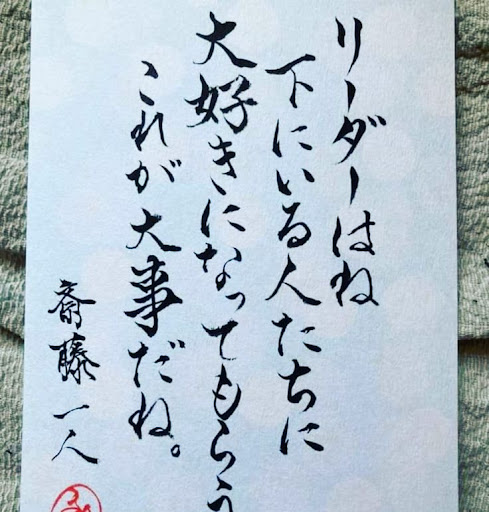 リーダーはね
下にいる人たちに
大好きになってもらう
これが大事だね。
斎藤一人